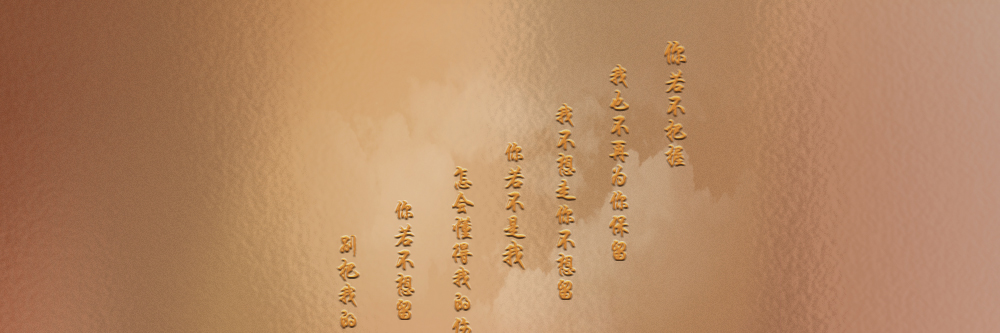 你若不把握
我也不再为你保留
我不想走你不想留
你若不是我
怎会懂得我的伤
你若不想留
别把我的